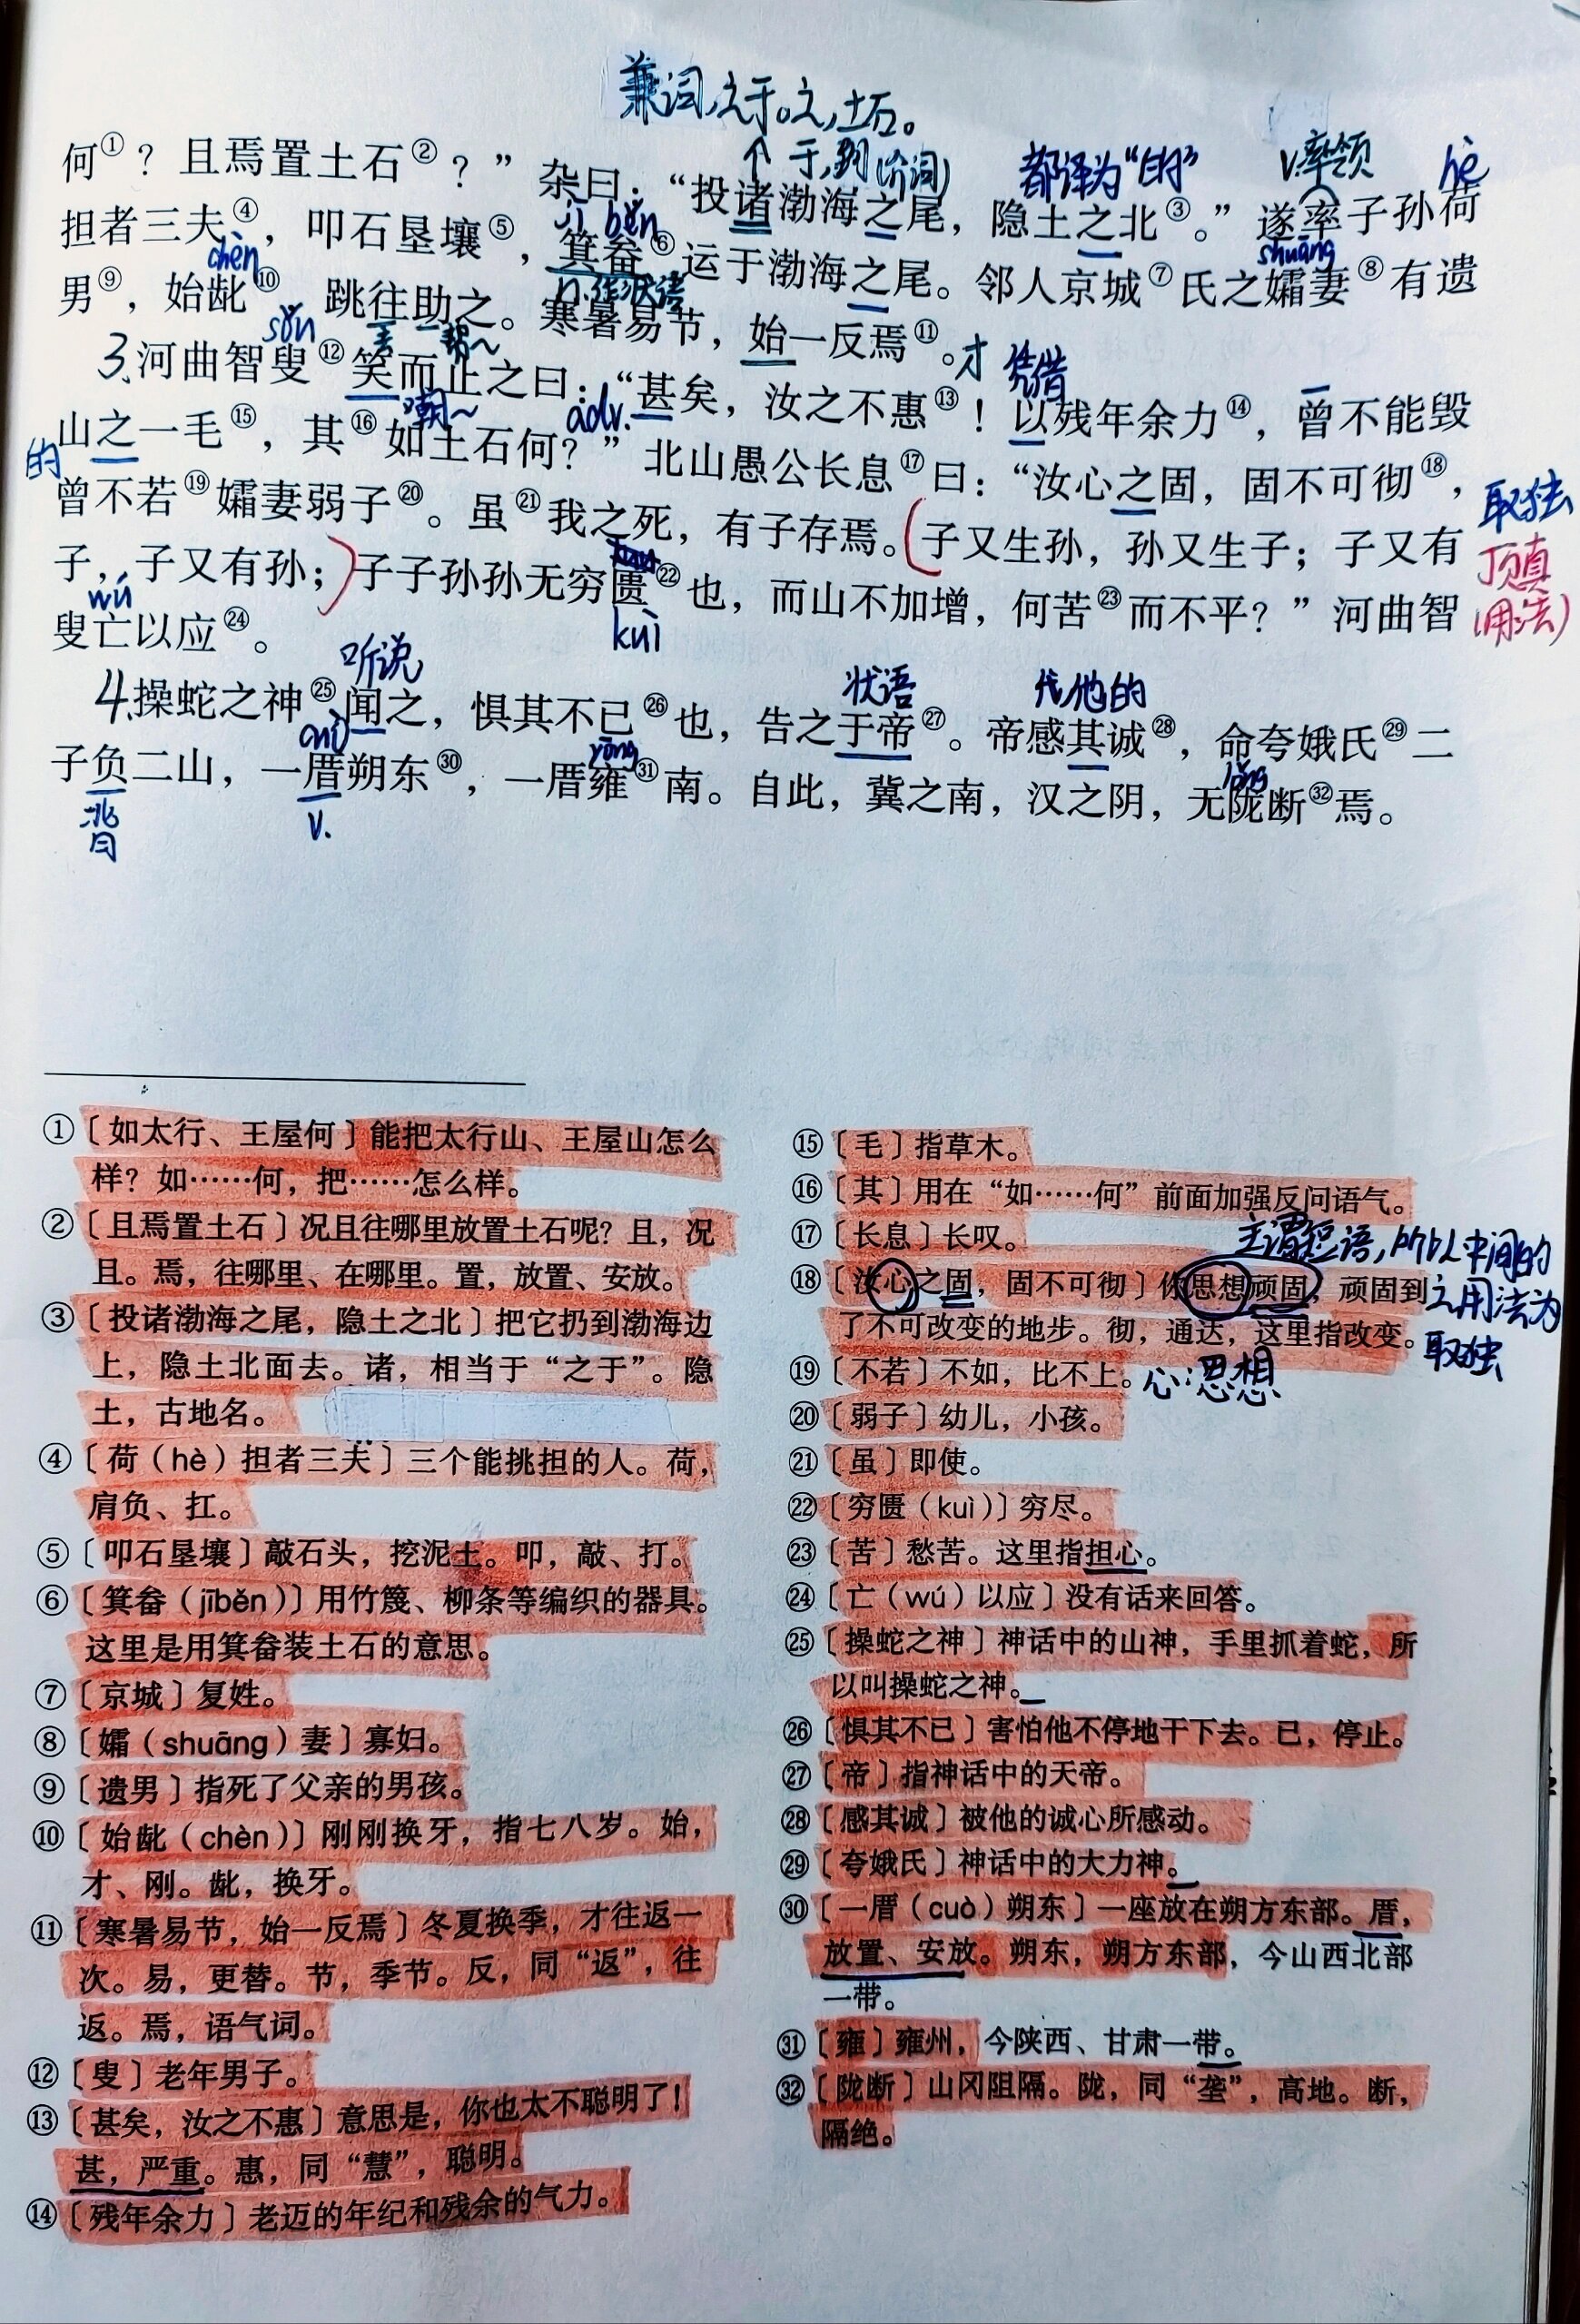 兼词,之于。之,土石。
于,到(介词)
都译为“的”
v.率领
hè
何①?且焉置土石②?”杂曰:“投诸渤海之尾,隐土之北③。”遂率子孙荷
担者三夫④,叩石垦壤⑤,箕畚⑥运于渤海之尾。邻人京城⑦氏之孀妻⑧有遗
jī běn
shuāng
chèn
n.作状语
男⑨,始龀⑩,跳往助之。寒暑易节,始一反焉⑪。
才
sǒu
去
帮~
3、河曲智叟⑫笑而止之曰:“甚矣,汝之不惠⑬!以残年余力⑭,曾不能毁
嘲~
adv.
凭借
山之一毛⑮,其⑯如土石何?”北山愚公长息⑰曰:“汝心之固,固不可彻⑱,
的
取独
曾不若⑲孀妻弱子⑳。虽㉑我之死,有子存焉。(子又生孙,孙又生子;子又有
子,子又有孙;)子子孙孙无穷匮㉒也,而山不加增,何苦㉓而不平?”河曲智
顶真
(用法)
wú
kuì
叟亡以应㉔。
听说
状语
代,他的
4、操蛇之神㉕闻之,惧其不已㉖也,告之于帝㉗。帝感其诚㉘,命夸娥氏㉙二
cuò
yōng
lǒng
子负二山,一厝朔东㉚,一厝雍㉛南。自此,冀之南,汉之阴,无陇断㉜焉。
背
v.
①〔如太行、王屋何〕能把太行山、王屋山怎么
样?如……何,把……怎么样。
②〔且焉置土石〕况且往哪里放置土石呢?且,况
且。焉,往哪里、在哪里。置,放置、安放。
③〔投诸渤海之尾,隐土之北〕把它扔到渤海边
上,隐土北面去。诸,相当于“之于”。隐
土,古地名。
④〔荷(hè)担者三夫〕三个能挑担的人。荷,
肩负、扛。
⑤〔叩石垦壤〕敲石头,挖泥土。叩,敲、打。
⑥〔箕畚(jīběn)〕用竹篾、柳条等编织的器具。
这里是用箕畚装土石的意思。
⑦〔京城〕复姓。
⑧〔孀(shuāng)妻〕寡妇。
⑨〔遗男〕指死了父亲的男孩。
⑩〔始龀(chèn)〕刚刚换牙,指七八岁。始,
才、刚。龀,换牙。
⑪〔寒暑易节,始一反焉〕冬夏换季,才往返一
次。易,更替。节,季节。反,同“返”,往
返。焉,语气词。
⑫〔叟〕老年男子。
⑬〔甚矣,汝之不惠〕意思是,你也太不聪明了!
甚,严重。惠,同“慧”,聪明。
⑭〔残年余力〕老迈的年纪和残余的气力。
⑮〔毛〕指草木。
⑯〔其〕用在“如……何”前面加强反问语气。
⑰〔长息〕长叹。
主谓短语,所以中间的
之用法为
取独
⑱〔汝心之固,固不可彻〕你思想顽固,顽固到
了不可改变的地步。彻,通达,这里指改变。
⑲〔不若〕不如,比不上。
心:思想
⑳〔弱子〕幼儿,小孩。
㉑〔虽〕即使。
㉒〔穷匮(kuì)〕穷尽。
㉓〔苦〕愁苦。这里指担心。
㉔〔亡(wú)以应〕没有话来回答。
㉕〔操蛇之神〕神话中的山神,手里抓着蛇,所
以叫操蛇之神。
㉖〔惧其不已〕害怕他不停地干下去。已,停止。
㉗〔帝〕指神话中的天帝。
㉘〔感其诚〕被他的诚心所感动。
㉙〔夸娥氏〕神话中的大力神。
㉚〔一厝(cuò)朔东〕一座放在朔方东部。厝,
放置、安放。朔东,朔方东部,今山西北部
一带。
㉛〔雍〕雍州,今陕西、甘肃一带。
㉜〔陇断〕山冈阻隔。陇,同“垄”,高地。断,
隔绝。